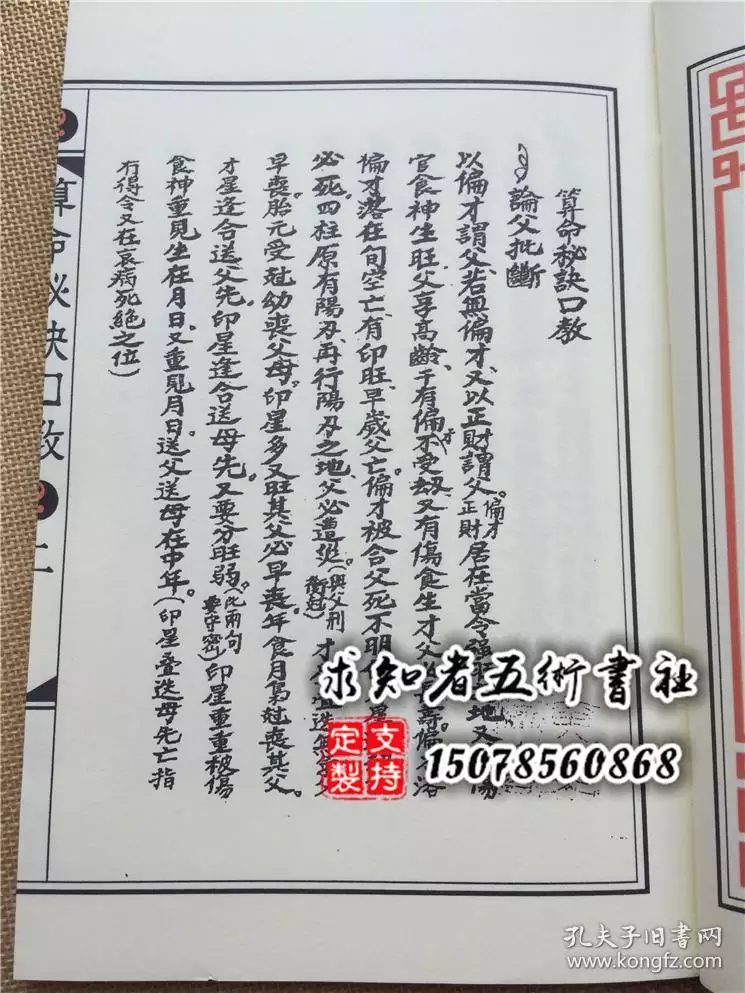 算命秘訣口教
論父批斷
以偏才謂父,若無偏才,又以正財謂父。偏才正財居在當令強旺地又
官食神生旺,父享高齡,于有偏才不受刼,又有傷食生才父
偏才落在旬空亡,有印旺,早歲父亡。偏才被合父死不明
必死。四柱原有陽刃,再行陽刃之地,父必遭災(與父刑衝尅)才
早喪。胎元受尅幼喪父母。印星多又旺其父必早喪。年食月梟尅喪其父。
才星逢合送父先。印星逢合送母先。又要分旺弱。(此兩句要守密)印星重重被傷
食神重見生在月日,又重見月日。送父送母在中年。(印星叠迭母先亡指
有得令又在衰病死絕之位)
算命秘訣口教
二
求知者五術書社
支持定製
15078560868
孔夫子旧書网
www.kongfz.com